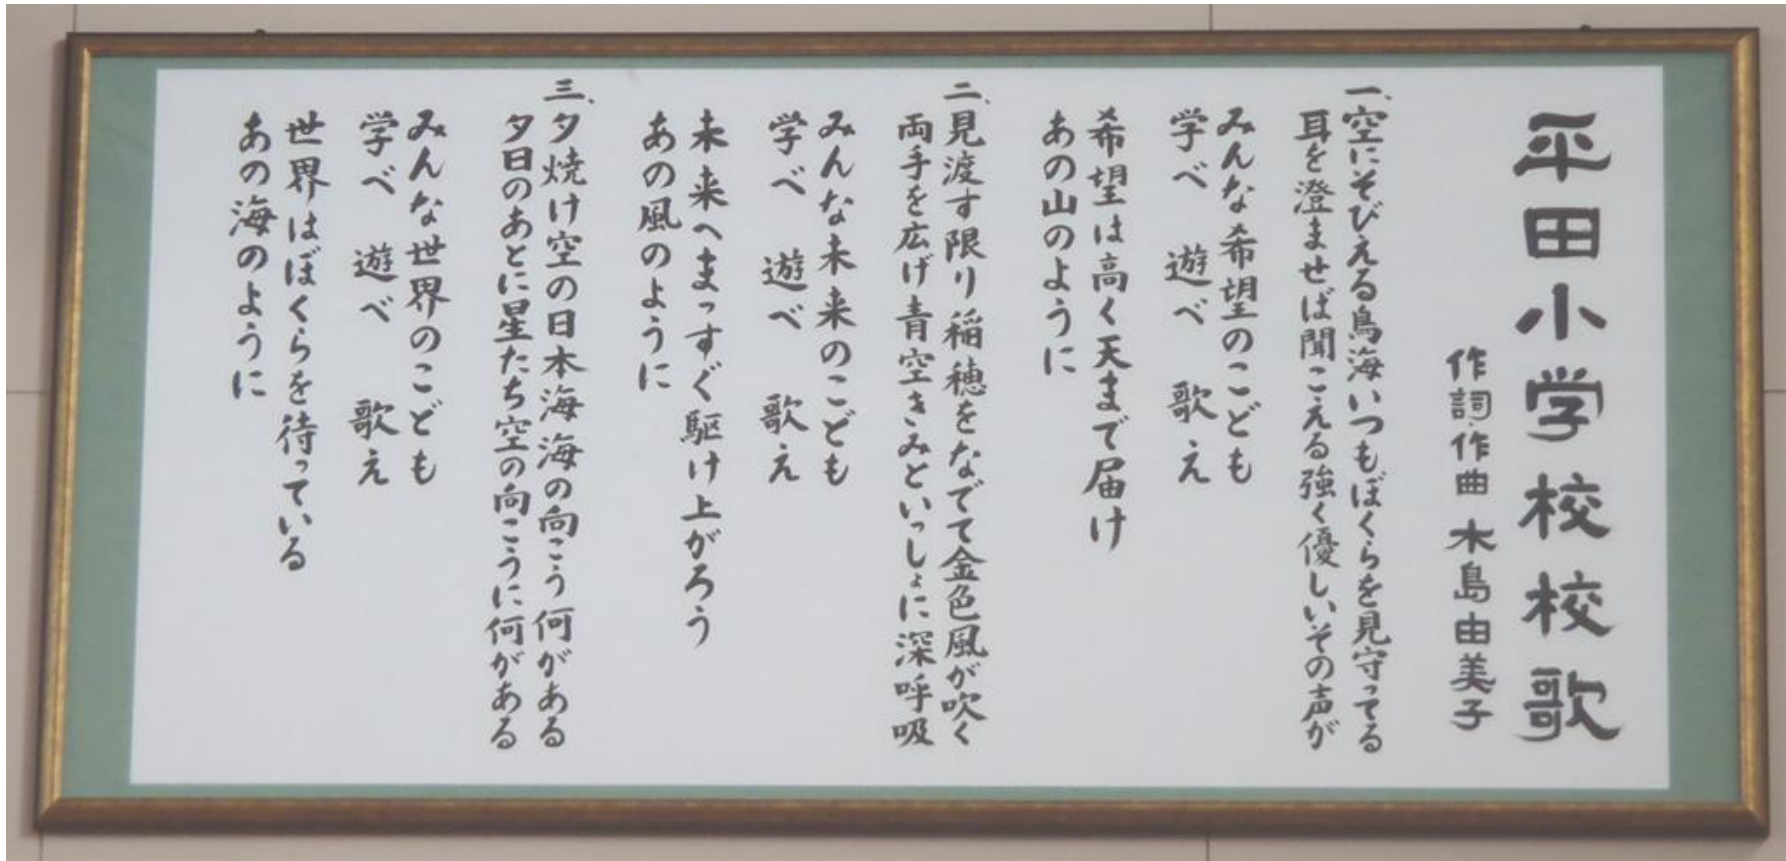 平田小学校校歌
作詞・作曲 木島由美子
一、空にそびえる鳥海いつもぼくらを見守ってる
耳を澄ませば聞こえる強く優しいその声が
みんな希望のこども
学べ 遊べ 歌え
希望は高く天まで届け
あの山のように
二、見渡す限り稲穂をなでて金色風が吹く
両手を広げ青空きみといっしょに深呼吸
みんな未来のこども
学べ 遊べ 歌え
未来へまっすぐ駆け上がろう
あの風のように
三、夕焼け空の日本海海の向こう何がある
夕日のあとに星たち空の向こうに何がある
みんな世界のこども
学べ 遊べ 歌え
世界はぼくらを待っている
あの海のように